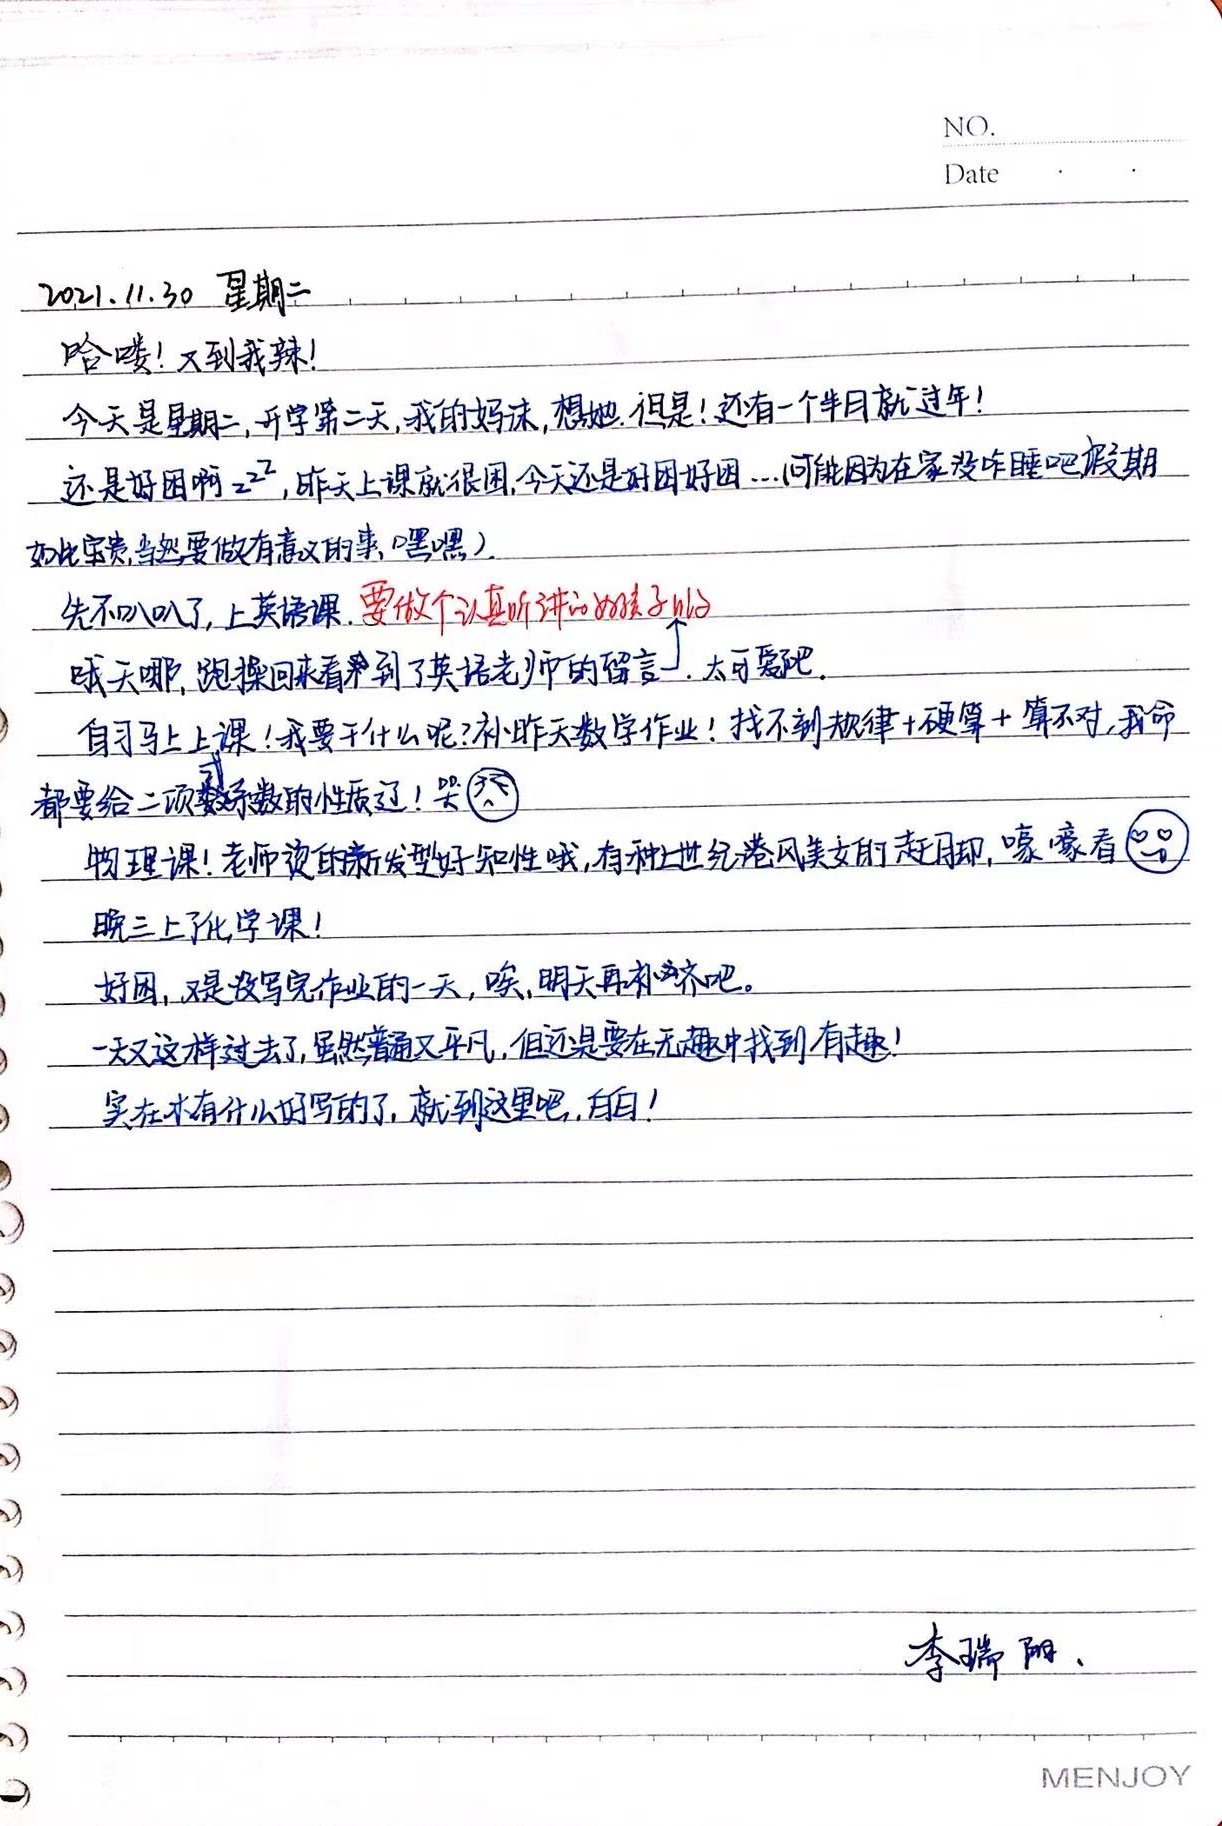 NO.
Date
2021.11.30 星期二
哈喽！又到我辣！
今天是星期二,开学第二天,我的妈沫,想她.但是！还有一个半月就过年！
还是好困啊zzz,昨天上课就很困,今天还是好困好困...(可能因为在家没咋睡吧 假期
如此宝贵,当然要做有意义的事,嘿嘿).
先不叭叭了,上英语课.要做个认真听讲的好孩子哈
哦天哪,跑操回来看到了英语老师的留言.太可爱吧.
自习马上上课！我要干什么呢？补昨天数学作业！找不到规律+硬算+算不对,我命
都要给二项式系数的性质辽！哭
物理课！老师烫的新发型好知性哦,有种上世纪港风美女的赶脚,嚎嚎看
晚三上了化学课！
好困,又是没写完作业的一天,唉,明天再补齐吧。
一天又这样过去了,虽然普通又平凡,但还是要在无趣中找到有趣！
实在木有什么好写的了,就到这里吧,白白！
李瑞阳.
MENJOY